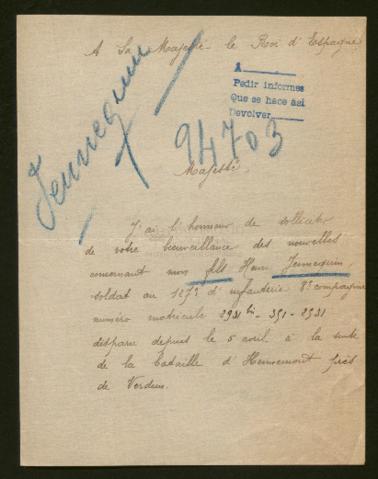 A Sa Majesté le Roi d'Espagne
Jennequin
A
Pedir informes
Que se hace asi
Devolver
94703
Majesté,
J'ai l'honneur de solliciter
de votre bienveillance des nouvelles
concernant mon fils Henri Jennequin
soldat au 127e d'infanterie 8e compagnie
numéro matricule 2931 bis - 391 - 2931
disparu depuis le 5 avril à la suite
de la Bataille d'Hennemont près
de Verdun.